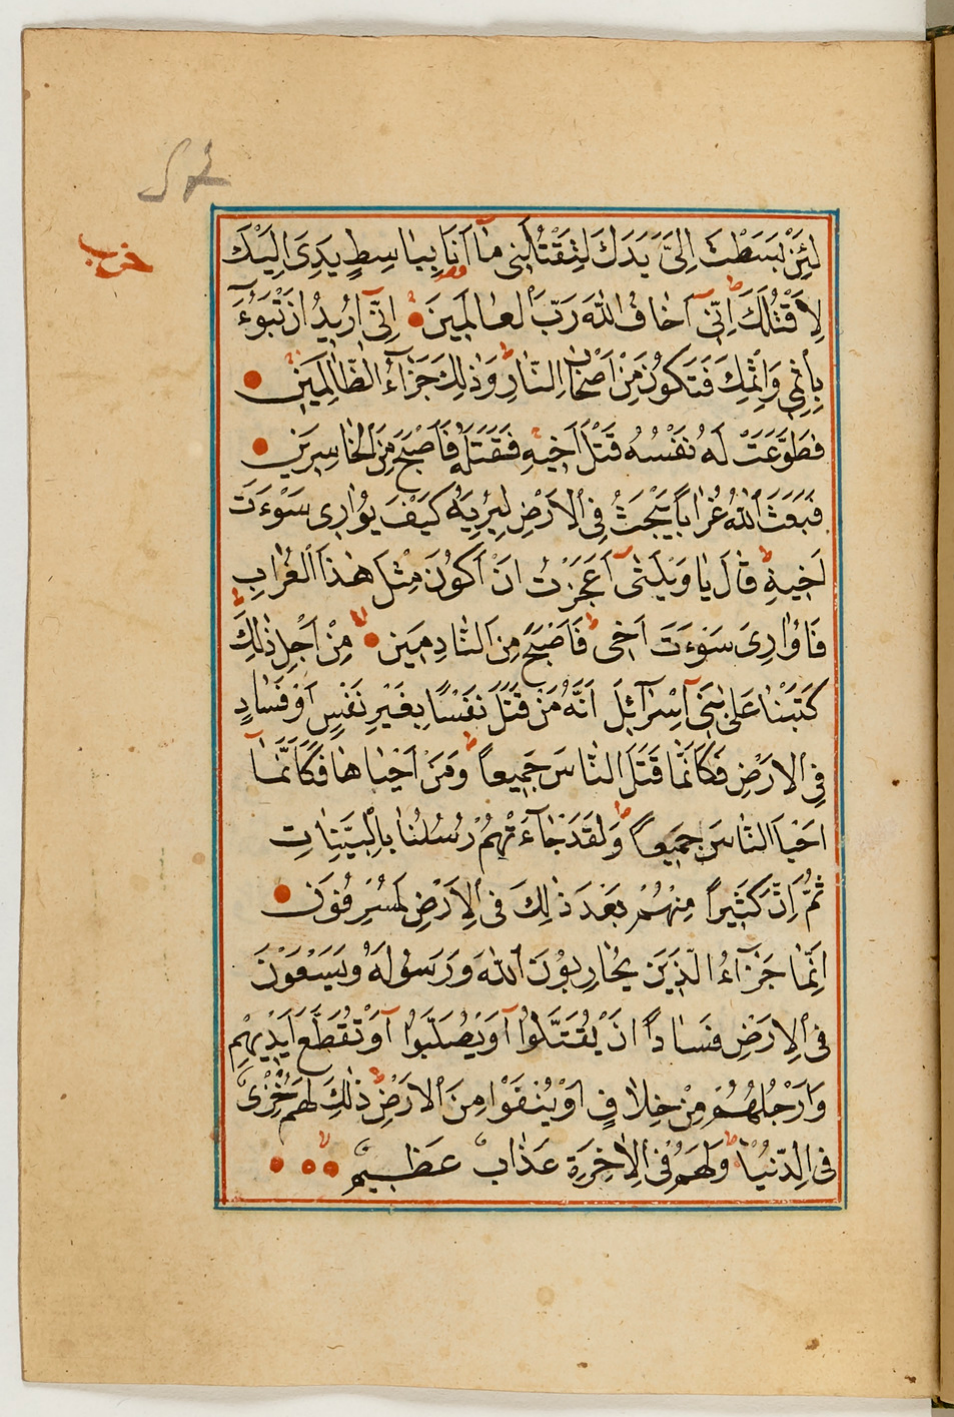 حزب
لَئِنْ بَسَطْتَ اِلَىَّ يَدَكَ لِتَقْتُلَنِى مَٓا اَنَا بِبَاسِطٍ يَدِىَ اِلَيْكَ
لِاَقْتُلَكَ اِنِّٓى اَخَافُ اللّٰهَ رَبَّ الْعَالَمِينَ اِنِّٓى اُرِيدُ اَنْ تَبُٓوءَ
بِاِثْمِى وَاِثْمِكَ فَتَكُونَ مِنْ اَصْحَابِ النَّارِ وَذٰلِكَ جَزَٓاءُ الظَّالِمِينَ
فَطَوَّعَتْ لَهُ نَفْسُهُ قَتْلَ اَخِيهِ فَقَتَلَهُ فَاَصْبَحَ مِنَ الْخَاسِرِينَ
فَبَعَثَ اللّٰهُ غُرَاباً يَبْحَثُ فِى الْاَرْضِ لِيُرِيَهُ كَيْفَ يُوَارِى سَوْءَتَ
اَخِيهِ قَالَ يَا وَيْلَتٰٓى اَعَجَزْتُ اَنْ اَكُونَ مِثْلَ هٰذَا الْغُرَابِ
فَاُوَارِىَ سَوْءَتَ اَخِى فَاَصْبَحَ مِنَ النَّادِمِينَ مِنْ اَجْلِ ذٰلِكَ
كَتَبْنَا عَلٰى بَنِٓى اِسْرَٓائِلَ اَنَّهُ مَنْ قَتَلَ نَفْسًا بِغَيْرِ نَفْسٍ اَوْ فَسَادٍ
فِى الْاَرْضِ فَكَاَنَّمَا قَتَلَ النَّاسَ جَمِيعاً وَمَنْ اَحْيَاهَا فَكَاَنَّمَٓا
اَحْيَا النَّاسَ جَمِيعاً وَلَقَدْ جَٓاءَتْهُمْ رُسُلُنَا بِالْبَيِّنَاتِ
ثُمَّ اِنَّ كَثِيراً مِنْهُمْ بَعْدَ ذٰلِكَ فِى الْاَرْضِ لَمُسْرِفُونَ
اِنَّمَا جَزَٓاءُ الَّذِينَ يُحَارِبُونَ اللّٰهَ وَرَسُولَهُ وَيَسْعَوْنَ
فِى الْاَرْضِ فَسَاداً اَنْ يُقَتَّلُٓوا اَوْ يُصَلَّبُٓوا اَوْ تُقَطَّعَ اَيْدِيهِمْ
وَاَرْجُلُهُمْ مِنْ خِلَافٍ اَوْ يُنْفَوْا مِنَ الْاَرْضِ ذٰلِكَ لَهُمْ خِزْىٌ
فِى الدُّنْيَا وَلَهُمْ فِى الْاٰخِرَةِ عَذَابٌ عَظِيمٌ